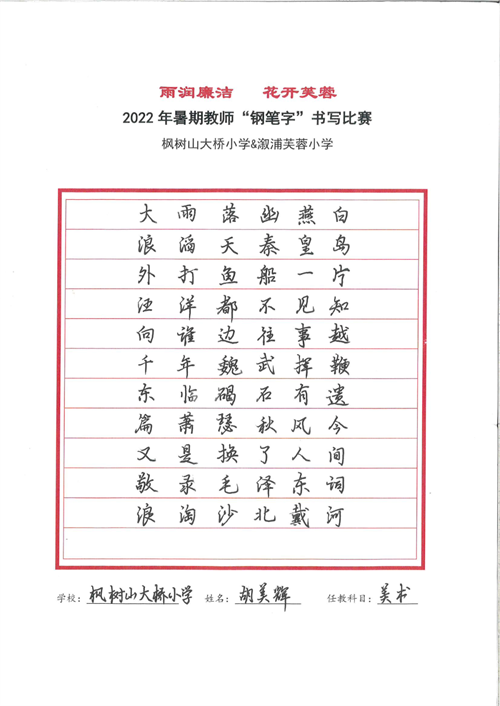 雨润廉洁 花开芙蓉
2022年暑期教师“钢笔字”书写比赛
枫树山大桥小学&溆浦芙蓉小学
大雨落幽燕白
浪滔天秦皇岛
外打鱼船一片
汪洋都不见知
向谁边往事越
千年魏武挥鞭
东临碣石有遗
篇萧瑟秋风今
又是换了人间
敬录毛泽东词
浪淘沙北戴河
学校：枫树山大桥小学 姓名：胡美辉 任教科目：美术